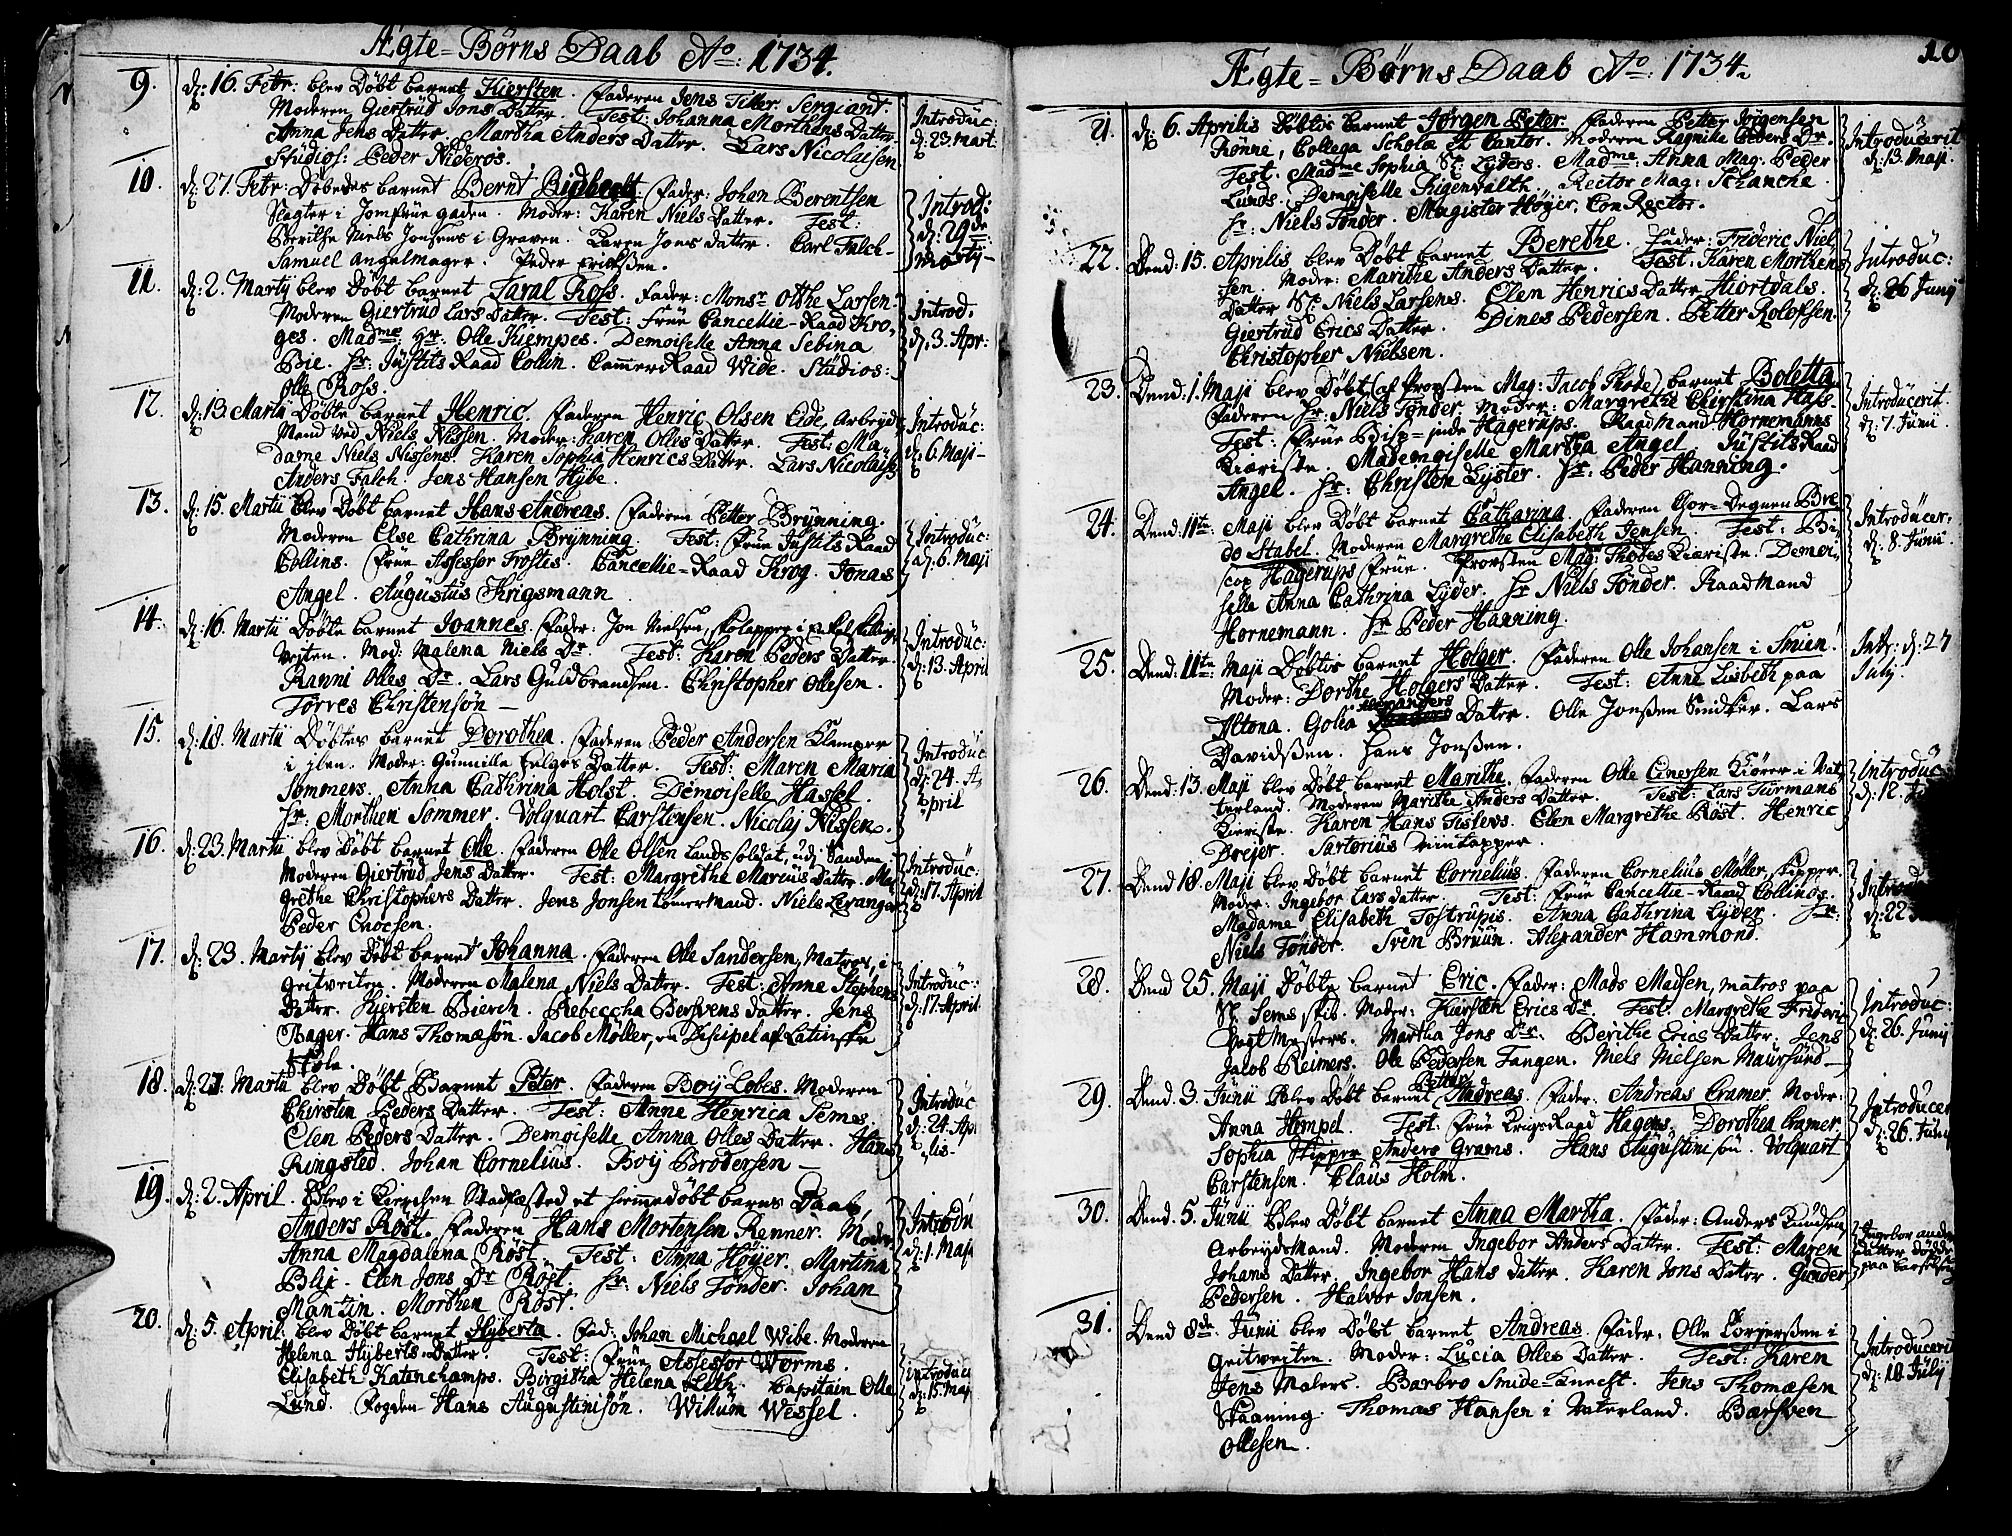 Ægte-Børns Daab Ao: 1734.
9. d: 16. Febr: blev Døbt barnet Kiersten. Faderen Jens Tiller Sergiant.
Moderen Giertrud Jons Datter. Test: Johanna Morthens Datter.
Anna Jens Datter. Martha Anders Datter. Lars Nicolaisen
Studios: Peder Niderøs.
Introduc:
d: 23. Mart:
10. d: 27. Febr: Døbedes barnet Bernt. Fader: Johan Berentsen
Slagter i Jomfrue gaden. Moder: Karen Niels Datter. Test:
Berithe Niels Jonsens i Graven. Karen Jons datter. Carl Falch
Samuel Angelmager. Peder Erichsen.
Introd:
d: 29de
Martij
11. d: 2. Martij blev Døbt barnet Taral Ross. Fader: Monsr Otthe Larsen
Moderen Giertrud Lars Datter. Test: Frue Cancellie-Raad Kro-
ges. Madme Hr: Olle Kiempes. Demoiselle Anna Sebina
Bie. Hr: Justits Raad Collin. CammerRaad Wide. Studios:
Olle Ross.
Introd.
d: 3. Apr:
12. d: 13 Martii Døbte barnet Henric. Faderen Henric Olsen Eide, Arbeyds
Mand ved Niels Nissen. Moder: Karen Olles Datter. Test: Ma-
dame Niels Nissens. Karen Sophia Henrics Datter. Lars Nicolaisen
Anders Falch. Jens Hansen Hybe.
Introduc:
d: 6. Maji
13. d: 15. Martii blev Døbt barnet Hans Andreas. Faderen Petter Brynning.
Moderen Else Cathrina Brynning. Test: Frue Justits Raad
Collins. Frue Assessor Frostes. Cancellie-Raad Krog. Jonas
Angel. Augustus Krigsmann
Introduc:
d: 6. Maji
14. d: 16. Martii Døbte barnet Joannes. Fader: Jon Nielsen,
Veyten. Mod: Malena Niels Dr. Test: Karen Peders Datter.
Ranni Olles Dr. Lars Guldbrandsen. Christopher Ollesen.
Torres Christensøn
Introduc:
d: 13. April
15. d: 18. Martii Døbtes barnet Dorothea. Faderen Peder Andersen Klemper
i Ilen. Moder: Gunnille Helges Datter. Test: Maren Maria
Sommers. Anna Cathrina Holst. Demoiselle Hassel.
Hr: Morthen Sommer. Volquart Carstensen. Nicolaj Nissen.
Introduc
d: 24. A-
pril
16. d: 23. Martii blev Døbt barnet Olle. Faderen Olle Olsen Landssoldat, udj Sanden.
Moderen Giertrud Jens Datter. Test: Margrethe Marcus Datter. Mar-
grethe Christophers Datter. Jens Jonsen tømermand. Niels Levanger
Peder Enocsen.
Introduc:
d: 17. April
17. d: 23. Martij blev Døbt barnet Johanna. Faderen Olle Sandersen, Matros, i
Geitveiten. Moderen Malena Niels Datter. Test: Anne Stephens
Datter. Kiersten Bierch. Rebeccha Bersvens datter. Jens
Bager. Hans Thomæsøn. Jacob Møller, en Discipel af Latinske
Skole.
Introduc:
d: 17. April
18. d: 27. Martii blev Døbt Barnet Peter. Faderen Boij Lobes. Moderen
Chirstin Peders Datter. Test: Anne Henrica Sems.
Elen Peders Datter. Demoiselle Anna Olles Datter. Hans
Ringsted. Johan Cornelius. Boij Brodersen
Introduc
d: 24. Apr
lis
19. d: 2. April. Blev i Kirchen Stadfæsted et hiemmedøbt barns Daab,
Anders Røst. Faderen Hans Mortensen Renner. Moder
Anna Magdalena Røst. Test: Anna Høyer. Martina
Blix. Elen Jons Dr Røst. Hr: Niels Tønder. Johan
Mantin. Morthen Røst.
Introdu
d: 1. Maji
20. d: 5. April: blev Døbt barnet Hyberta. Fad: Johan Michael Wibe. Moderen
Helena Hyberts-Datter. Test: Frue Assessor Worms.
Elisabeth Katenchamps. Birgitha Helena Leth. Capitain Olle
Lund. Fogden Hans Augustinisøn. Willum Wessel.
introduc
d: 15. Maj
Ægte-Børns Daab Ao: 1734.
10
21. d: 6. Aprilis Døbtes barnet Jørgen Peter. Faderen Petter Jørgensen
Rønne, Collega Scholæ et Cantor. Moderen Ragnila Peders Dr.
Test: Madme Sophia Sl. Lyders. Madme: Anna Mag: Peder
Lunds. Demoiselle Sigenvalth. Rector Mag: Schancke.
Hr: Niels Tønder. Magister Høyer, ConRector.
Introducerit
d: 13. Maji.
22. Dend. 15. Aprilis blev Døbt barnet Berethe. Fader: Frideric Niel-
sen. Moder: Marithe Anders Datter. Test: Karen Morthens
Datter Sl. Niels Larsens. Elen Henrics Datter Hiortdals.
Giertrud Erics Datter. Dines Pedersen. Petter Rolofsen.
Christopher Nielsen.
Introduc:
d: 26 Junij
23. Dend: 1. Maji blev Døbt (af Provsten Mag: Jacob Thode) barnet Boletta
Faderen Hr: Niels Tønder. Moder: Margrethe Chirstina Hass
Test: Frue Bisp-inde Hagerups. Raadmand Hornemanns
Kiæriste. Mademoiselle Martha Angel. Justits Raad
Angel. Hr: Christen Lyster. Hr: Peder Hanning.
Introducerit.
d: 7. Junii
24. Dend: 11te: Maji blev Døbt barnet Catharina. Faderen Chor-Degnen Bre-
do Stabel. Moderen Margrethe Elisabeth Jensen. Test: Bi-
scop Hagerups Frue. Provsten Mag: Thodes Kiæriste. Demoi-
selle Anna Cathrina Lyder. Hr Niels Tønder. Raadmand
Hornemann. Hr Peder Hanning.
Introducer:
d: 8. Junii
25. Dend. 11te: Maji Døbtes barnet Holger. Faderen Olle Johansen i Smien.
Moder: Dorthe Holgers Datter. Test: Anne Lisbeth paa
Altona. Golia Alexanders Datter. Olle Jonssen Snidker. Lars
Davidssen. Hans Jonssen.
Intr: d: 27
Julij.
26. Dend: 13. Maji blev Døbt barnet Marithe. Faderen Olle Einersen Kiører i Vat-
terland. Moderen Marithe Anders Datter. Test: Lars Turmans
Kieriste. Karen Hans Teslevs. Elen Margrethe Røst. Henric
Drejer. Sartorius Viintapper.
Introduc
d: 12.
27. Dend 18. Maji blev Døbt barnet Cornelius. Faderen Cornelius Møller, Skipper.
Moder: Ingebor Lars datter. Test: Frue Cancellie-Raad Collings.
Madame Elisabeth Tostrupis. Anna Cathrina Lyder. Hr:
Niels Tønder. Sven Bruun. Alexander Hammond.
Introd
d: 22
28. Dend 25. Maji Døbte barnet Eric. Fader: Mads Madsen, matros paa
Sl. Sems skib. Moder: Kiersten Erics Dr. Test. Margrethe Frideric
Fogt Mesters. Martha Jons Dr. Berithe Erics Datter. Jens
Jacob Reimers. Ole Pedersen Fangen. Niels Nielsen Maursund
Introduc:
d: 26. Junij
29. Dend 3. Junii Blev Døbt barnet Petter Andreas. Fader: Andreas Cramer. Moder:
Anna Hempel. Test: Frue KrigsRaad Hagens. Dorothea Cramer.
Sophia Skipper Anders Grams. Hans Augustinisøn. Volquart
Carstensen. Claus Holm.
Introducer
d: 26. Junij
30. Dend 5. Junii Blev Døbt barnet Anna Martha. Fader: Anders Knudsen
Arbeydsmand. Moderen Ingebor Anders Datter. Test: Maren
Johans Datter. Ingebor Hans datter. Karen Jons Datter. Gunder
Pedersen. Halvor Jonsen.
Ingebor anders
datter døde
paa barselseng
31. Dend 8de Junii blev Døbt barnet Andreas. Fader: Olle Torgerssen i
Geitveiten. Moder: Lucia Olles Datter. Test: Karen
Jens Malers. Barbro Smide-Knecht. Jens Thomæsen
Skaaning. Thomas Hansen i Vaterland. Bærsven
Ollesen.
Introducerit
d: 18 Julij